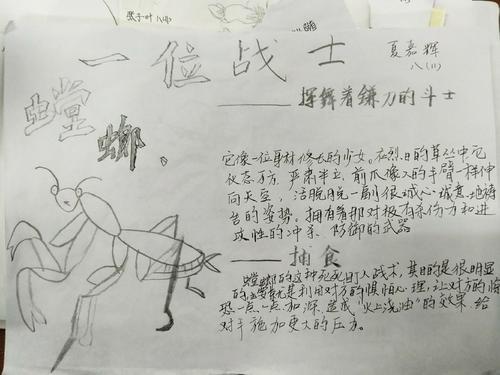 张子叶 八(4)
一位战士
夏嘉辉
八(11)
——挥舞着鎌刀的斗士
螳螂
它像一位身材修长的少女。在烈日的草丛中它
仪态万方,严肃半立,前爪像人的手臂一样伸
向天空,活脱脱一副很诚心诚意地祷
告的姿势。拥有着那对极有杀伤力和进
攻性的冲杀、防御的武器
——捕食
螳螂的这种死死盯人战术,其目的是很明显
的,就是利用对方的惧怕心理,让对方的惊
恐一点一点加深,造成“火上浇油”的效果,给
对手施加更大的压力。